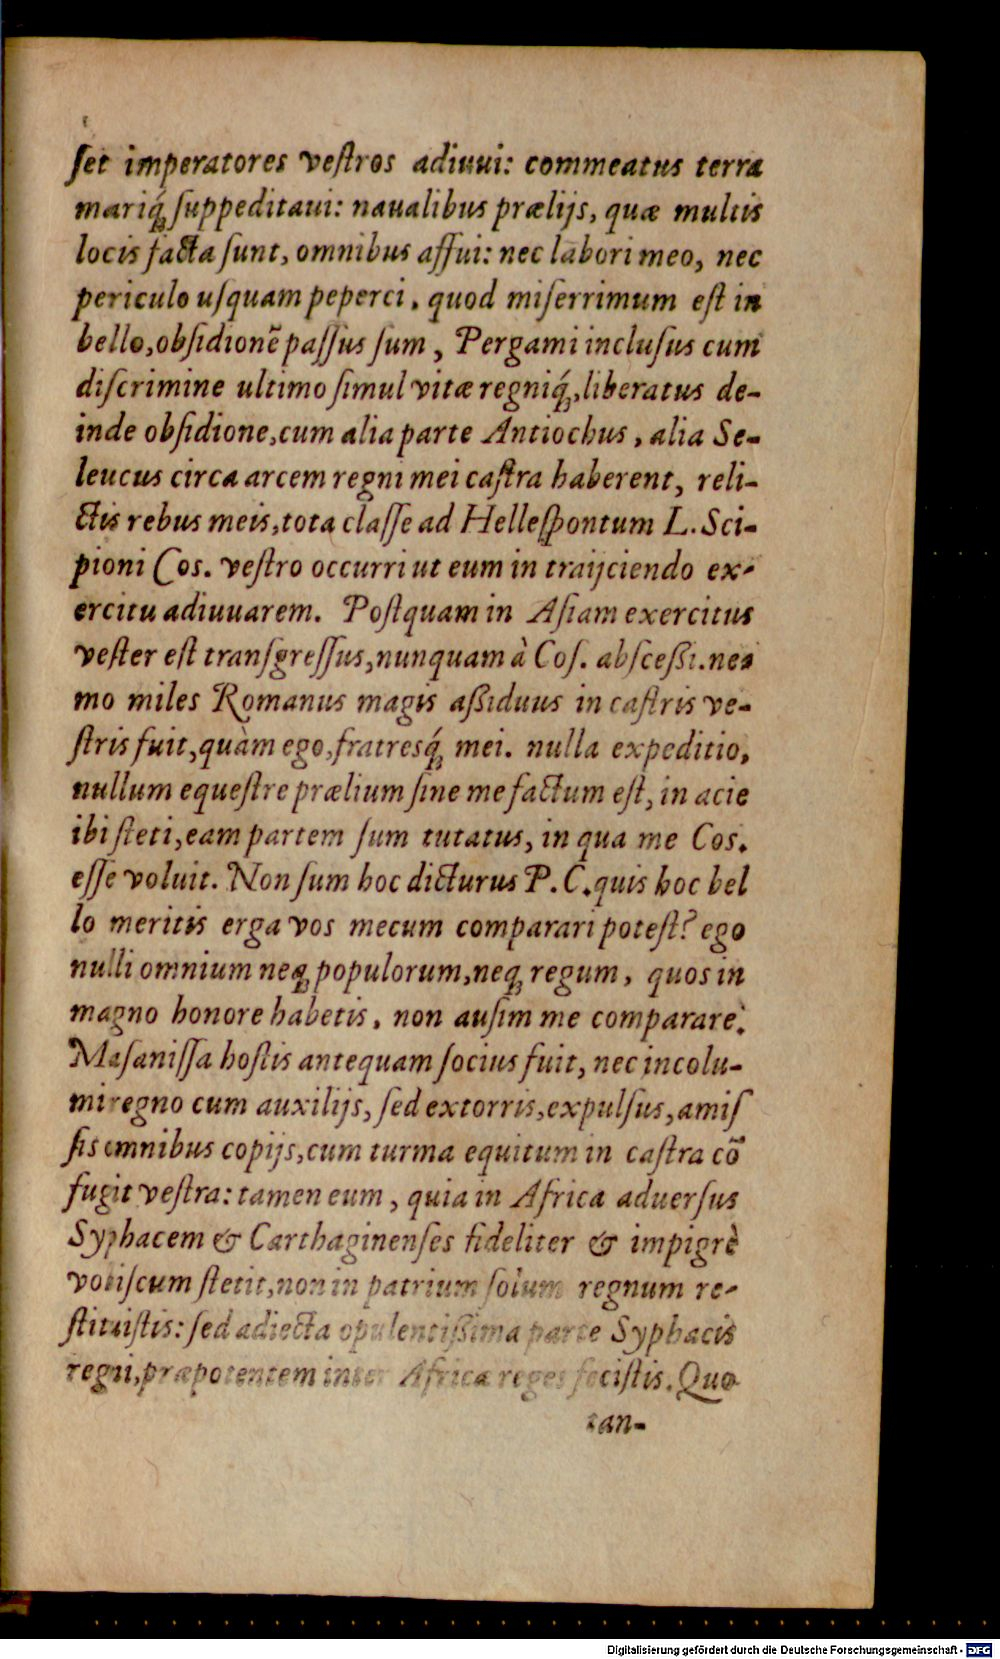 ſet imperatores veſtros adiuui: commeatus terra
mariq́ꝫ ſuppeditaui: naualibus prælijs, quæ multis
locis facta ſunt, omnibus affui: nec labori meo, nec
periculo uſquam peperci. quod miſerrimum eſt in
bello, obſidionē paſſus ſum, Pergami incluſus cum
diſcrimine ultimo ſimul vitæ regniq́ꝫ, liberatus de-
inde obſidione, cum alia parte Antiochus, alia Se-
leucus circa arcem regni mei caſtra haberent, reli-
ctis rebus meis, tota claſſe ad Helleſpontum L. Sci-
pioni Cos. veſtro occurri ut eum in traijciendo ex-
ercitu adiuuarem. Poſtquam in Aſiam exercitus
veſter eſt tranſgreſſus, nunquam à Coſ. abſceßi. ne-
mo miles Romanus magis aßiduus in caſtris ve-
ſtris fuit, quàm ego, fratresq́ꝫ mei. nulla expeditio,
nullum equeſtre prælium ſine me factum eſt, in acie
ibi ſteti, eam partem ſum tutatus, in qua me Cos.
eſſe voluit. Non ſum hoc dicturus P. C. quis hoc bel
lo meritis erga vos mecum comparari poteſt? ego
nulli omnium neqꝫ populorum, neqꝫ regum, quos in
magno honore habetis, non auſim me comparare.
Maſaniſſa hoſtis antequam ſocius fuit, nec incolu-
mi regno cum auxilijs, ſed extorris, expulſus, amiſ
ſis omnibus copijs, cum turma equitum in caſtra cō
fugit veſtra: tamen eum, quia in Africa aduerſus
Syphacem & Carthaginenſes fideliter & impigrè
vobiſcum ſtetit, non in patrium ſolum regnum re-
ſtituiſtis: ſed adiecta opulentißima parte Syphacis
regni, præpotentem inter Africæ reges feciſtis. Quo
tan-
Digitalisierung gefördert durch die Deutsche Forschungsgemeinschaft - DFG